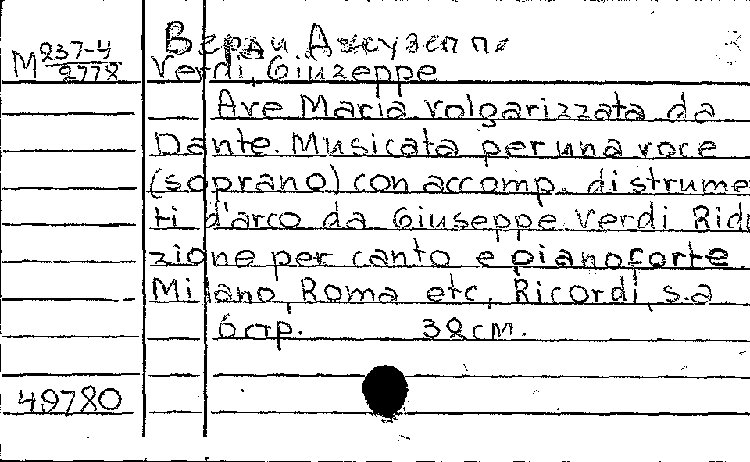 Верди Джузеппе
M 237-4/2778
Verdi, Giuzeppe
Ave Maria volgarizzata da
Dante. Musicata per una voce
(soprano) con accomp. di strume
ti d'arco da Giuseppe Verdi Ridu
zione per canto e pianoforte
Milano, Roma etc, Ricordi, s.a
6 стр. 32 см.
49780